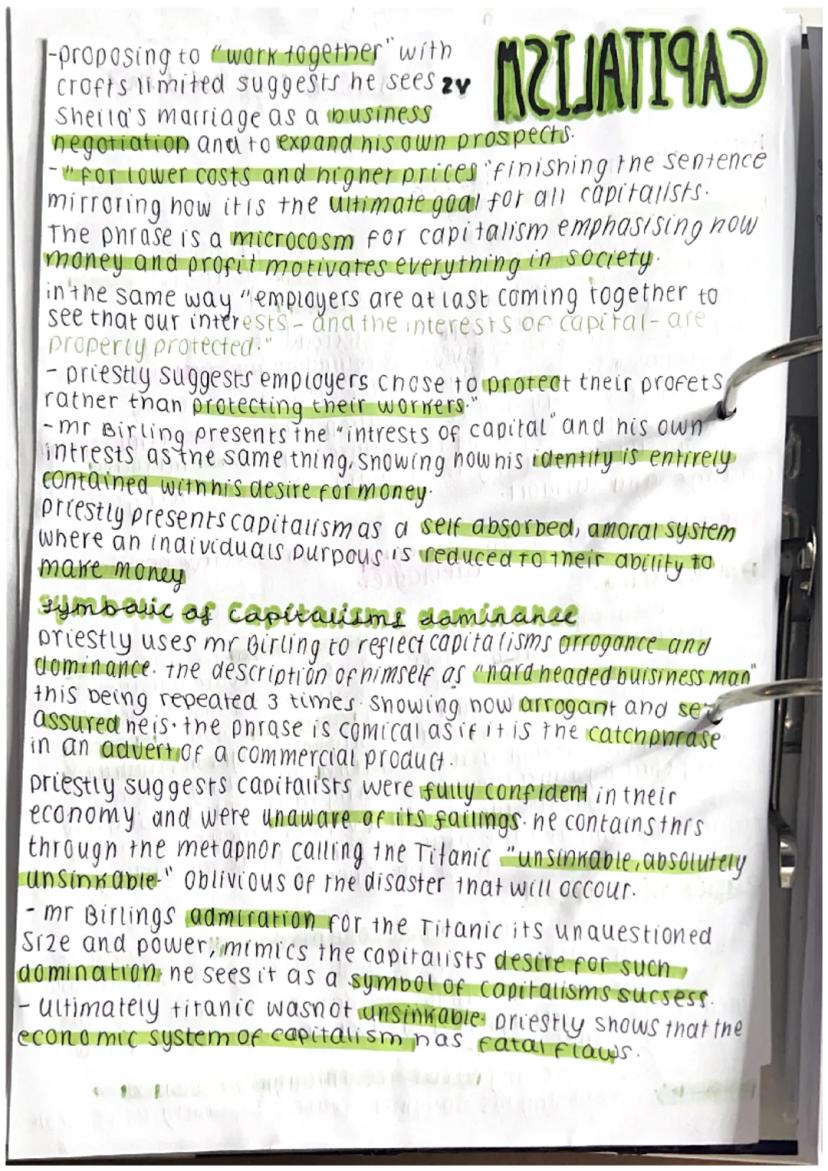 CAPITALISM
-proposing to "work together" with
crofts limited suggests he sees
Sheila's marriage as a business
negotiation and to expand his own prospects.
-"for lower costs and higher prices" finishing the sentence
mirroring how it is the ultimate goal for all capitalists.
The phrase is a microcosm for capitalism emphasising how
money and profit motivates everything in society.
in the same way "employers are at last coming together to
see that our interests - and the interests of capital - are
properly protected."
- priestly suggests employers chose to protect their profets
rather than protecting their workers."
-mr Birling presents the "intrests of capital" and his own
intrests as the same thing, showing how his identity is entirely
contained with his desire for money.
priestly presents capitalism as a self absorbed, amoral system
where an individuals purpous is reduced to their ability to
make money
symbolic of capitalisms dominance
priestly uses mr Birling to reflect capitalisms arrogance and
dominance. the description of himself as "hard headed buisiness man"
this being repeated 3 times. showing how arrogant and
assured he is. the phrase is comical as if it is the catchphrase
in an advert of a commercial product.
priestly suggests capitalists were fully confident in their
economy and were unaware of its failings. he contains this
through the metaphor calling the Titanic "unsinkable, absolutely
unsinkable." oblivious of the disaster that will occour.
- mr Birlings admiration for the Titanic its unquestioned
size and power, mimics the capitalists desire for such
domination. he sees it as a symbol of capitalisms sucsess.
- ultimately titanic was not unsinkable. priestly shows that the
economic system of capitalism has fatal flaws.